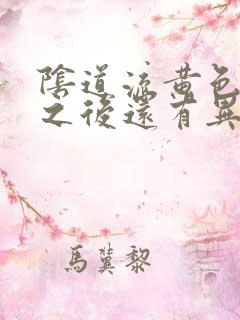 陰道流黃色
之後還有異
馬蓂黎